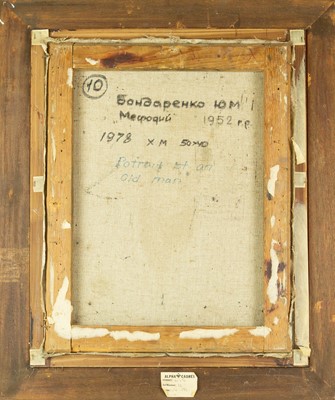 10
Бондаренко ЮМ
Мефодий 1952 г.р.
1978 х м 50х40
Potrait of an
Old man
ALPHA CADRES